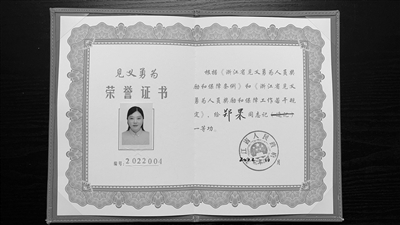 见义勇为
荣誉证书
编号:2022004
根据《浙江省见义勇为人员奖
励和保障条例》和《浙江省见义
勇为人员奖励和保障工作若干规
定》,给 郑果 同志记
一等功。
浙江省人民政府